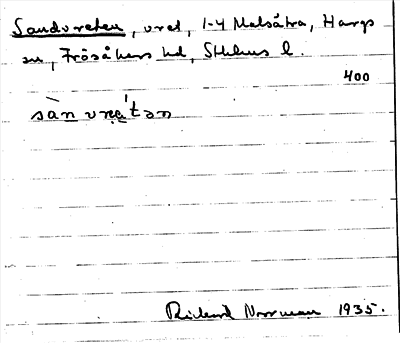 Sandvreten, vret, 1-4 Malsätra, Hargs
sn, Frösåkers hd, Sthlms l.
400
sànvre̤'tən
Rickard Norrman 1935.